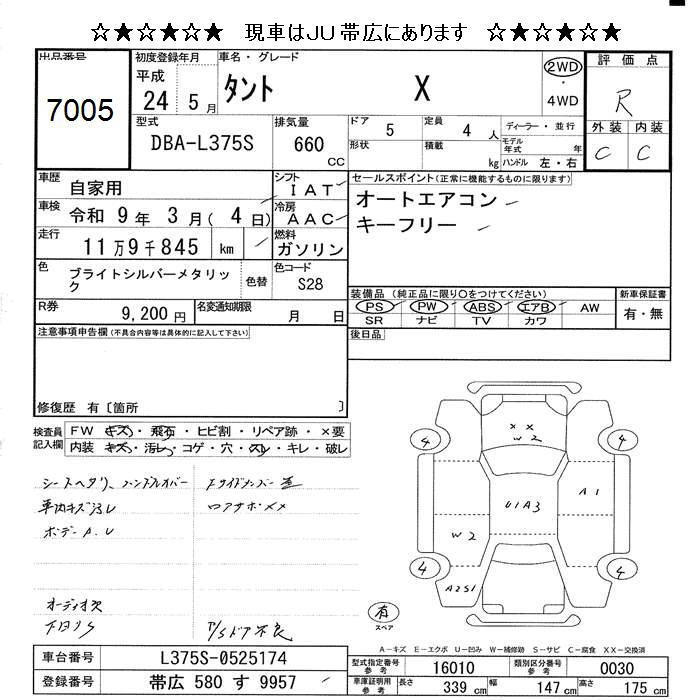 ☆★☆★☆★ 現車はJU帯広にあります ☆★☆★☆★
出品番号
7005
初度登録年月
平成
24 5 月
車名・グレード
タント X
2WD
4WD
評価点
R
外装 内装
C C
型式
DBA-L375S
排気量
660
CC
ドア 5
形状
定員 4 人
積載 kg
ディーラー・並行
モデル年式 年
ハンドル 左・右
車歴 自家用
シフト IAT
車検 令和 9 年 3 月( 4 日)
冷房 AAC
走行 11万9千845 km
燃料 ガソリン
色 ブライトシルバーメタリック
色替
色コード S28
R券 9,200 円
名変通知期限 月 日
セールスポイント(正常に機能するものに限ります)
オートエアコン
キーフリー
装備品(純正品に限り○をつけてください)
PS PW ABS エアB AW
SR ナビ TV カワ
新車保証書
有・無
後日品
注意事項申告欄(不具合内容等は具体的に記入して下さい)
修復歴 有〔箇所 〕
検査員記入欄
FW キズ・飛石・ヒビ割・リペア跡・×要
内装 キズ・汚レ・コゲ・穴・スレ・キレ・破レ
シートヘタリ、ハンドルオバー
車内キズ汚レ
ボデーA.U
オーディオ欠
下回りS
P/Sドア不良
××
W2
4 4
U1A3
A1
W2
4 4
A2S1
有
スペア
A-キズ E-エクボ U-凹み W-補修跡 S-サビ C-腐食 XX-交換済
車台番号 L375S-0525174
登録番号 帯広 580 す 9957
型式指定番号 参考 16010
類別区分番号 参考 0030
車庫証明用 参考 長さ 339 cm 幅 147 cm 高さ 175 cm